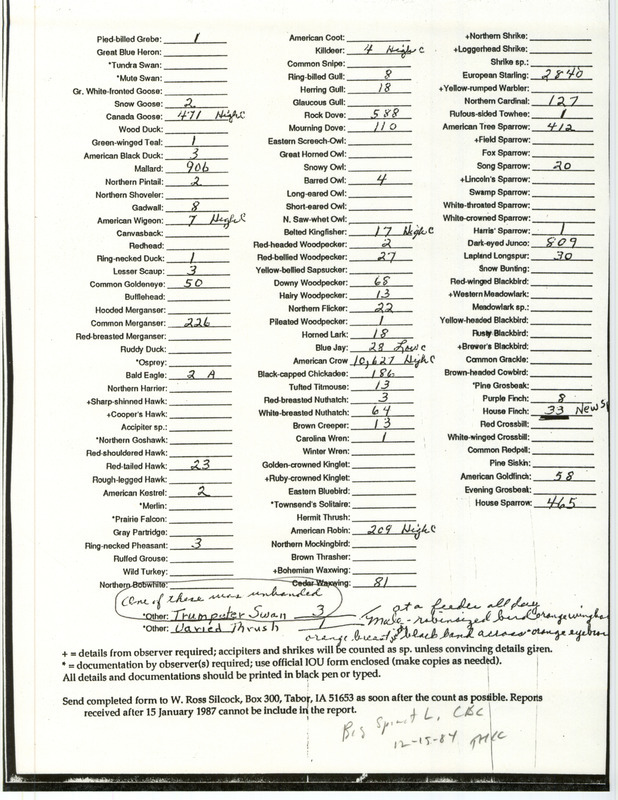 Pied-billed Grebe: 1
Great Blue Heron:
*Tundra Swan:
*Mute Swan:
Gr. White-fronted Goose:
Snow Goose: 2
Canada Goose: 471 High C
Wood Duck:
Green-winged Teal: 1
American Black Duck: 3
Mallard: 906
Northern Pintail: 2
Northern Shoveler:
Gadwall: 8
American Wigeon: 7 High C
Canvasback:
Redhead:
Ring-necked Duck: 1
Lesser Scaup: 3
Common Goldeneye: 50
Bufflehead:
Hooded Merganser:
Common Merganser: 226
Red-breasted Merganser:
Ruddy Duck:
*Osprey:
Bald Eagle: 2 A
Northern Harrier:
+Sharp-shinned Hawk:
+Cooper's Hawk:
Accipiter sp.:
*Northern Goshawk:
Red-shouldered Hawk:
Red-tailed Hawk: 23
Rough-legged Hawk:
American Kestrel: 2
*Merlin:
*Prairie Falcon:
Gray Partridge:
Ring-necked Pheasant: 3
Ruffed Grouse:
Wild Turkey:
Northern Bobwhite:
American Coot:
Killdeer: 4 High C
Common Snipe:
Ring-billed Gull: 8
Herring Gull: 18
Glaucous Gull:
Rock Dove: 588
Mourning Dove: 110
Eastern Screech-Owl:
Great Horned Owl:
Snowy Owl:
Barred Owl: 4
Long-eared Owl:
Short-eared Owl:
N. Saw-whet Owl:
Belted Kingfisher: 17 High C
Red-headed Woodpecker: 2
Red-bellied Woodpecker: 27
Yellow-bellied Sapsucker:
Downy Woodpecker: 68
Hairy Woodpecker: 13
Northern Flicker: 22
Pileated Woodpecker: 1
Horned Lark: 18
Blue Jay: 28 Low C
American Crow 10,627 High C
Black-capped Chickadee: 186
Tufted Titmouse: 13
Red-breasted Nuthatch: 3
White-breasted Nuthatch: 64
Brown Creeper: 13
Carolina Wren: 1
Winter Wren:
Golden-crowned Kinglet:
+Ruby-crowned Kinglet:
Eastern Bluebird:
*Townsend's Solitaire:
Hermit Thrush:
American Robin: 209 High C
Northern Mockingbird:
Brown Thrasher:
+Bohemian Waxwing:
Cedar Waxwing: 81
+Northern Shrike:
+Loggerhead Shrike:
Shrike sp.:
European Starling: 2840
+Yellow-rumped Warbler:
Northern Cardinal: 127
Rufous-sided Towhee: 1
American Tree Sparrow: 412
+Field Sparrow:
Fox Sparrow:
Song Sparrow: 20
+Lincoln's Sparrow:
Swamp Sparrow:
White-throated Sparrow:
White-crowned Sparrow:
Harris' Sparrow: 1
Dark-eyed Junco: 809
Lapland Longspur: 30
Snow Bunting:
Red-winged Blackbird:
+Western Meadowlark:
Meadowlark sp.:
Yellow-headed Blackbird:
Rusty Blackbird:
+Brewer's Blackbird:
Common Grackle:
Brown-headed Cowbird:
*Pine Grosbeak:
Purple Finch: 8
House Finch: 33 New Sp
Red Crossbill:
White-winged Crossbill:
Common Redpoll:
Pine Siskin:
American Goldfinch: 58
Evening Grosbeak:
House Sparrow: 465
One of these was unbanded
*Other: Trumpeter Swan 3
*Other: Varied Thrush 1
at a feeder all day
Male - robinsized bird orange wingbar
orange breast & black band across orange eyebrow
+ = details from observer required; accipiters and shrikes will be counted as sp. unless convincing details given.
* = documentation by observer(s) required; use official IOU form enclosed (make copies as needed).
All details and documentations should be printed in black pen or typed.
Send completed form to W. Ross Silcock, Box 300, Tabor, IA 51653 as soon after the count as possible. Reports
received after 15 January 1987 cannot be include in the report.
Big L, CBC
12-15-84